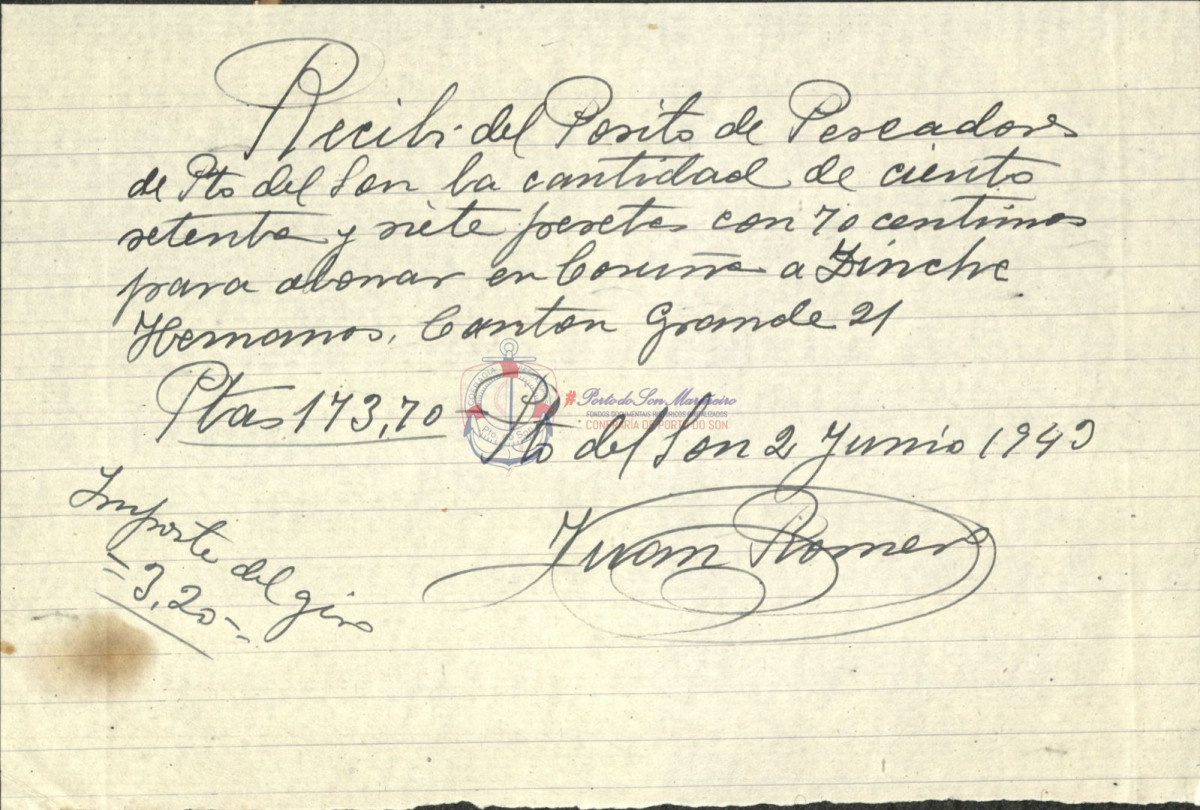 Recibi del Posito de Pescadores
de Pto del Son la cantidad de ciento
setenta y siete pesetas con 70 centimos
para abonar en Coruña a Zinche
Hermanos, Canton Grande 21
Ptas 173,70 - Pto del Son 2 Junio 1943
Importe del giro
- 3,20 -
Juan Romero
#Porto do Son Mariñeiro
FONDOS DOCUMENTAIS HISTÓRICOS DIXITALIZADOS
CONFRARÍA DE PORTO DO SON